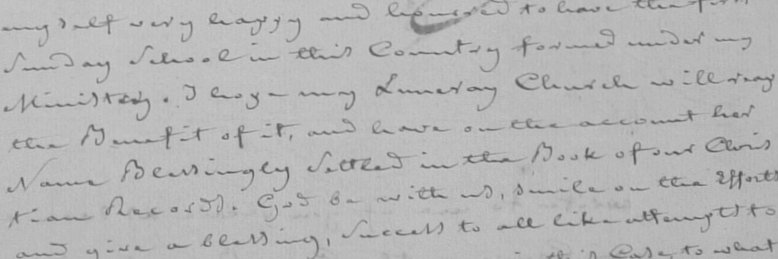 myself very happy and honored to have the first
Sunday School in this Country formed under my
Ministry. I hope my Luneray Church will reap
the Benefit of it, and have on the account her
Name Blessingly Settled in the Book of our Chris
tian Records. God be with us, smile on the Efforts
and give a blessing, success to all like attempts to
this Case, to what